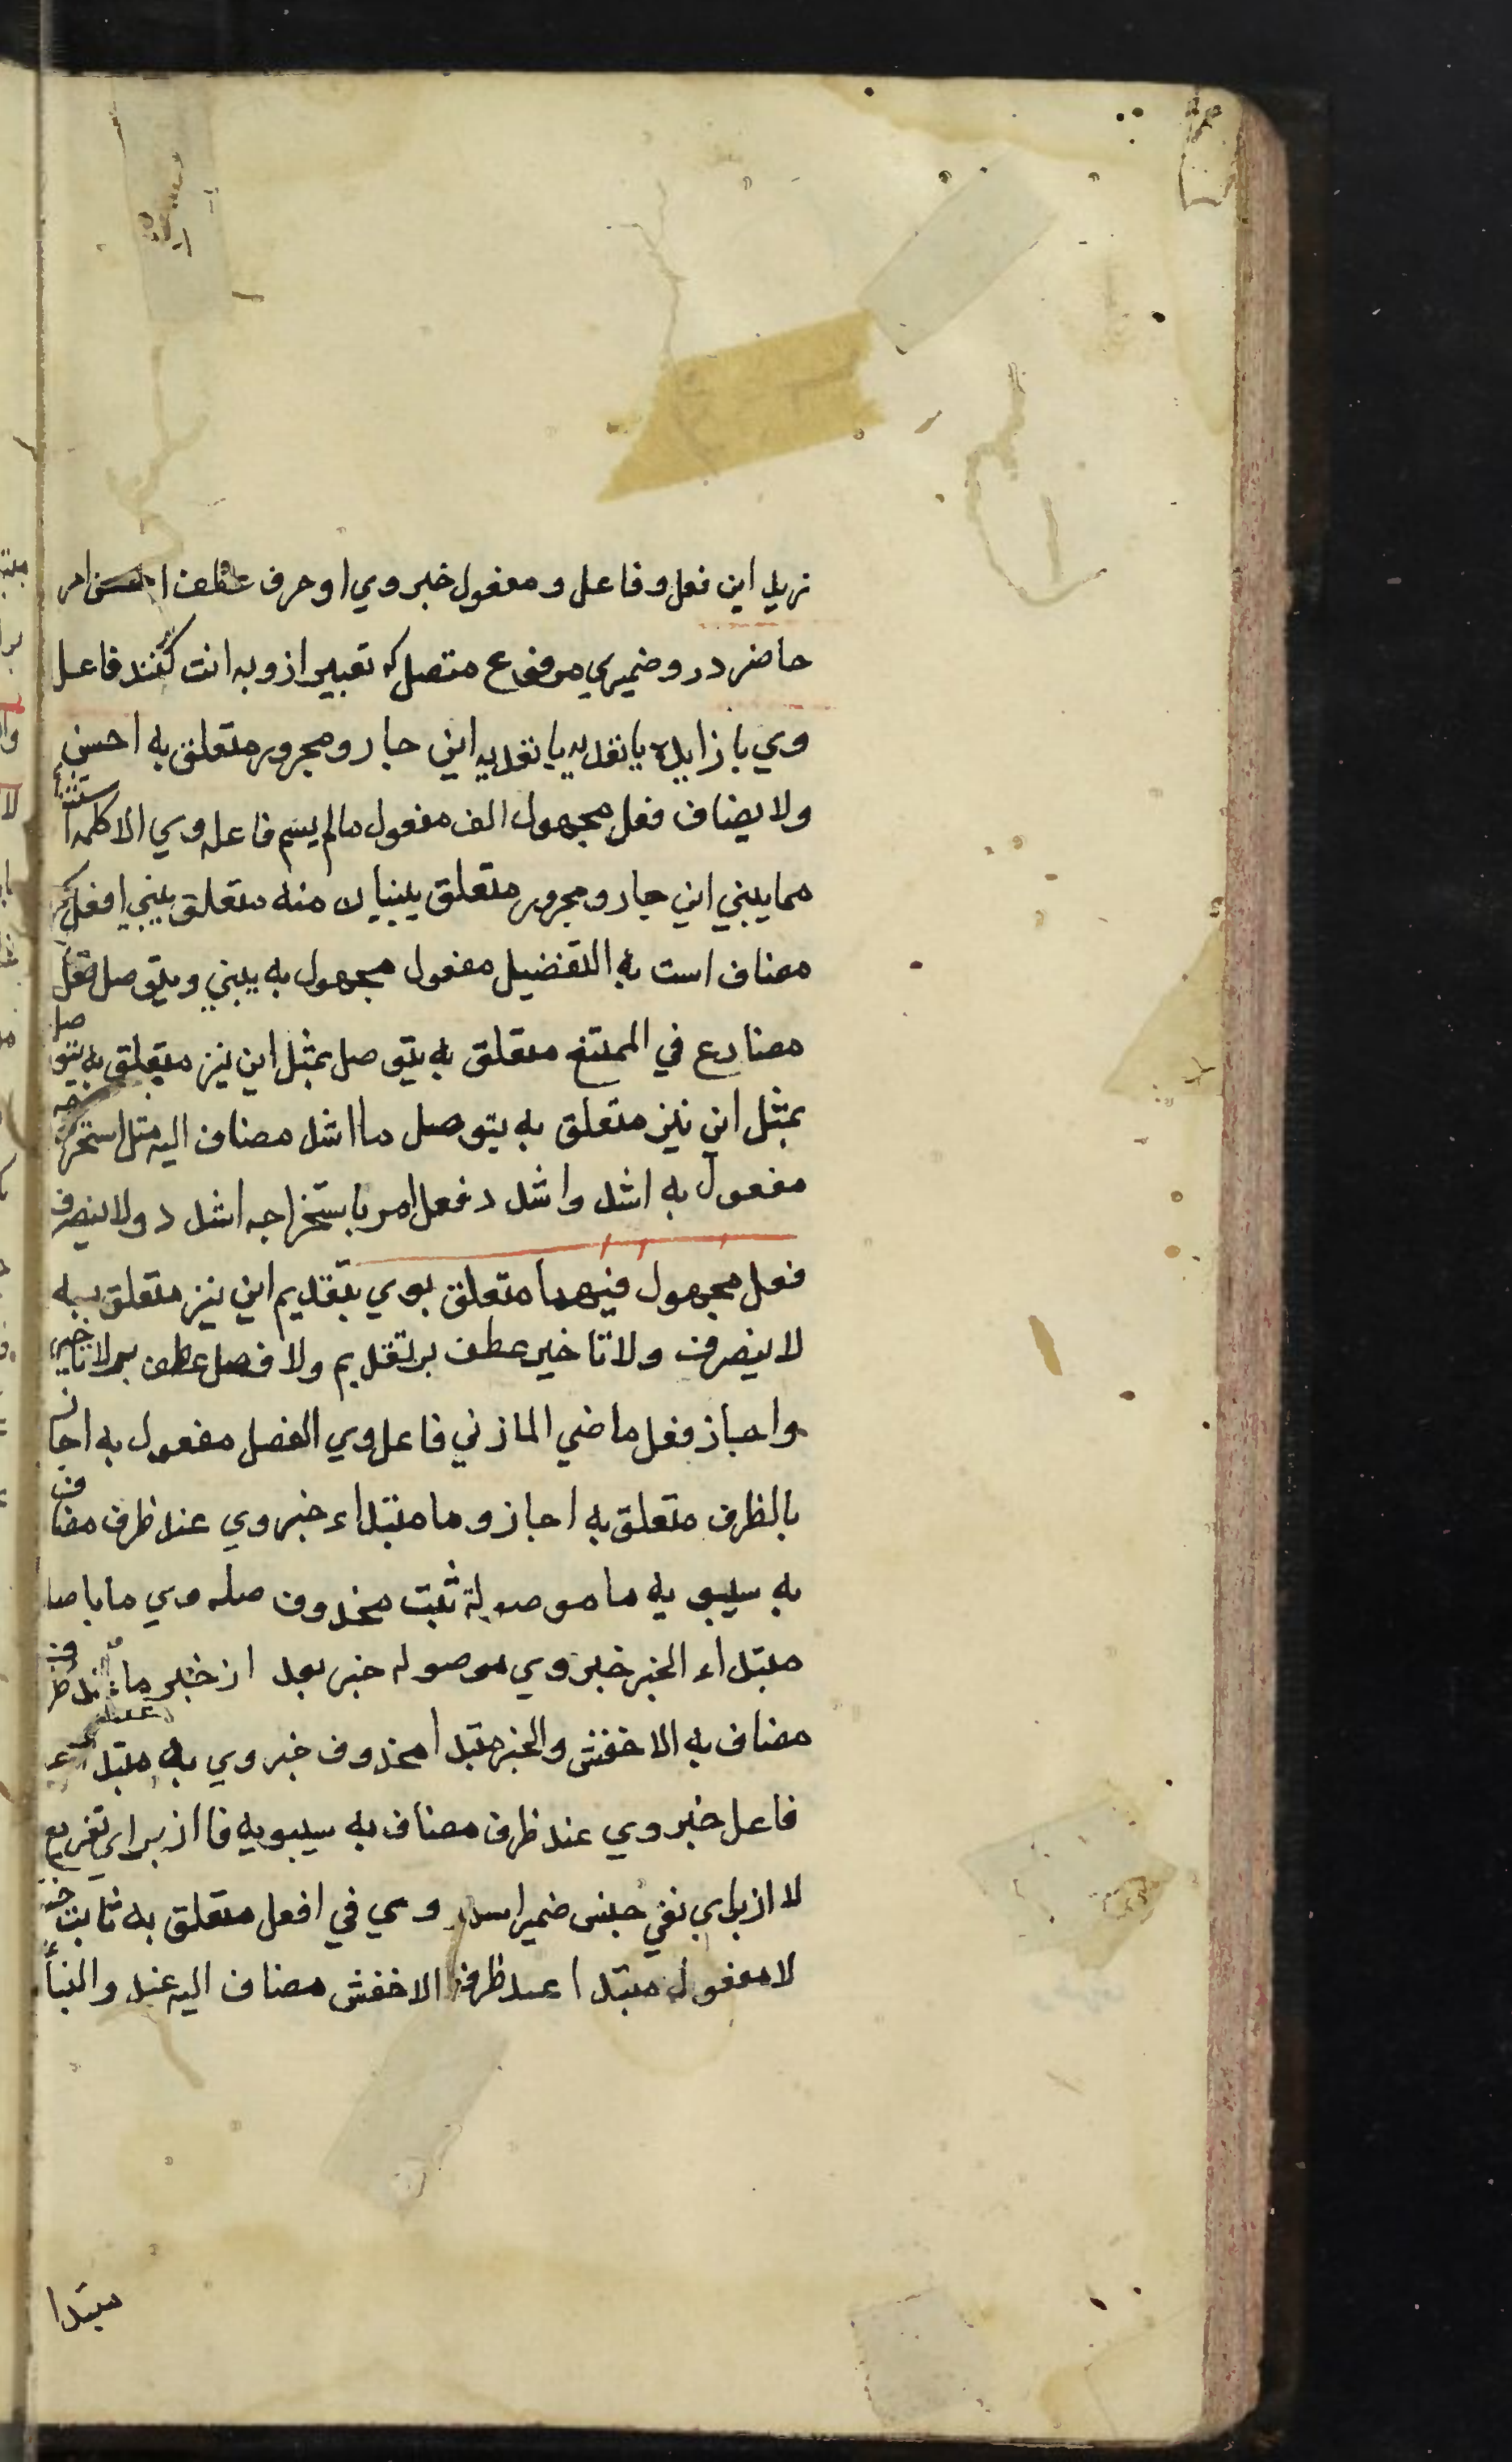 زید این فعل و فاعل و مفعول خبر وي او حرف عطف احسن امر
حاضر درو ضمیري مرفوع متصل که تعبیر ازو به انت کنند فاعل
وي با زایده یا تعدیه این جار و مجرور متعلق به احسن
ولا یضاف فعل مجهول الف مفعول مالم یسم فاعله وي الا کلمه استثنا
مما یبني این جار و مجرور متعلق یبنیان منه متعلق یبني افعل
مضاف است به التفضیل مفعول مجهول به یبني ویتوصل فعل
مضارع في الممتنع متعلق به یتوصل بمثل این نیز متعلق به یتوصل
بمثل این نیز متعلق به یتوصل ما اشد مضاف الیه مثل استخراجه
مفعول به اشد واشدد فعل امر باستخراجه اشدد ولا یتصرف
فعل مجهول فیهما متعلق بوي بتقدیم این نیز متعلق به
لا یتصرف ولا تاخیر عطف بر تقدیم ولا فصل عطف بر لا تاخیر
واجاز فعل ماضي المازني فاعل وي الفصل مفعول به اجاز
بالظرف متعلق به اجاز وما مبتداء خبر وي عند ظرف مضاف
به سیبویه ما موصولة ثبت محذوف صله وي ما با صله
مبتداء الخبر خبر وي موصوله خبر بعد از خبر ما عند ظرف
مضاف به الاخفش والخبر مبتدا محذوف خبر وي به مبتدا
فاعل خبر وي عند ظرف مضاف به سیبویه فا از براي تفریع
لا از براي نفي جنس ضمیر اسم وي في افعل متعلق به ثابت خبر
لا مفعول مبتدا عند ظرف الاخفش مضاف الیه عند والبأ
مبتدا